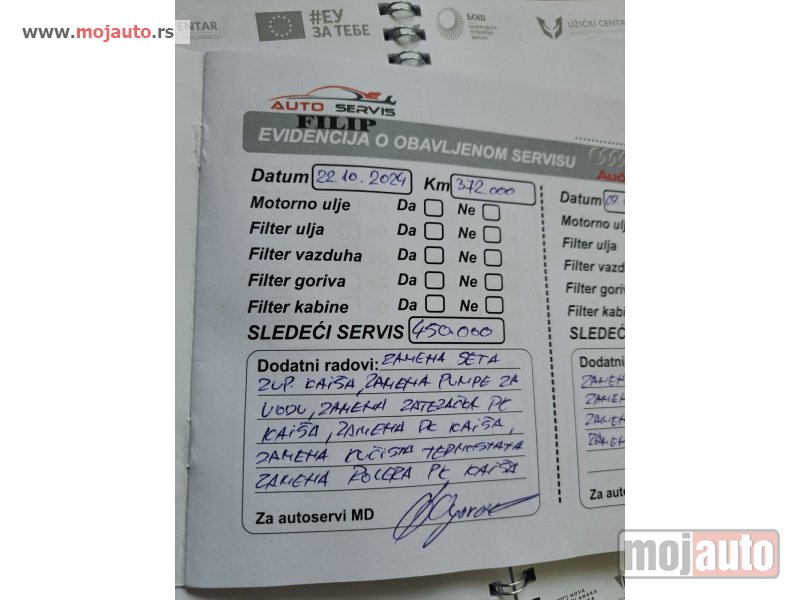 www.mojauto.rs
CENTAR
#ЕУ
ЗА ТЕБЕ
БОШ
UŽIČKI CENTAR
AUTO SERVIS
FILIP
EVIDENCIJA O OBAVLJENOM SERVISU
Datum 22.10.2024 Km 372.000
Motorno ulje Da Ne
Filter ulja Da Ne
Filter vazduha Da Ne
Filter goriva Da Ne
Filter kabine Da Ne
SLEDEĆI SERVIS 450.000
Dodatni radovi: ZAMENA SETA
ZUP. KAIŠA, ZAMENA PUMPE ZA
VODU, ZAMENA ZATEZAČEA PK
KAIŠA, ZAMENA PK KAIŠA,
ZAMENA KUČIŠTA TERMOSTATA
ZAMENA ROLERA PK KAIŠA
Za autoservi MD
Datum
Motorno ulj
Filter ulja
Filter vazd
Filter goriv
Filter kabi
SLEDEĆ
Dodatni
Za auto
mojauto